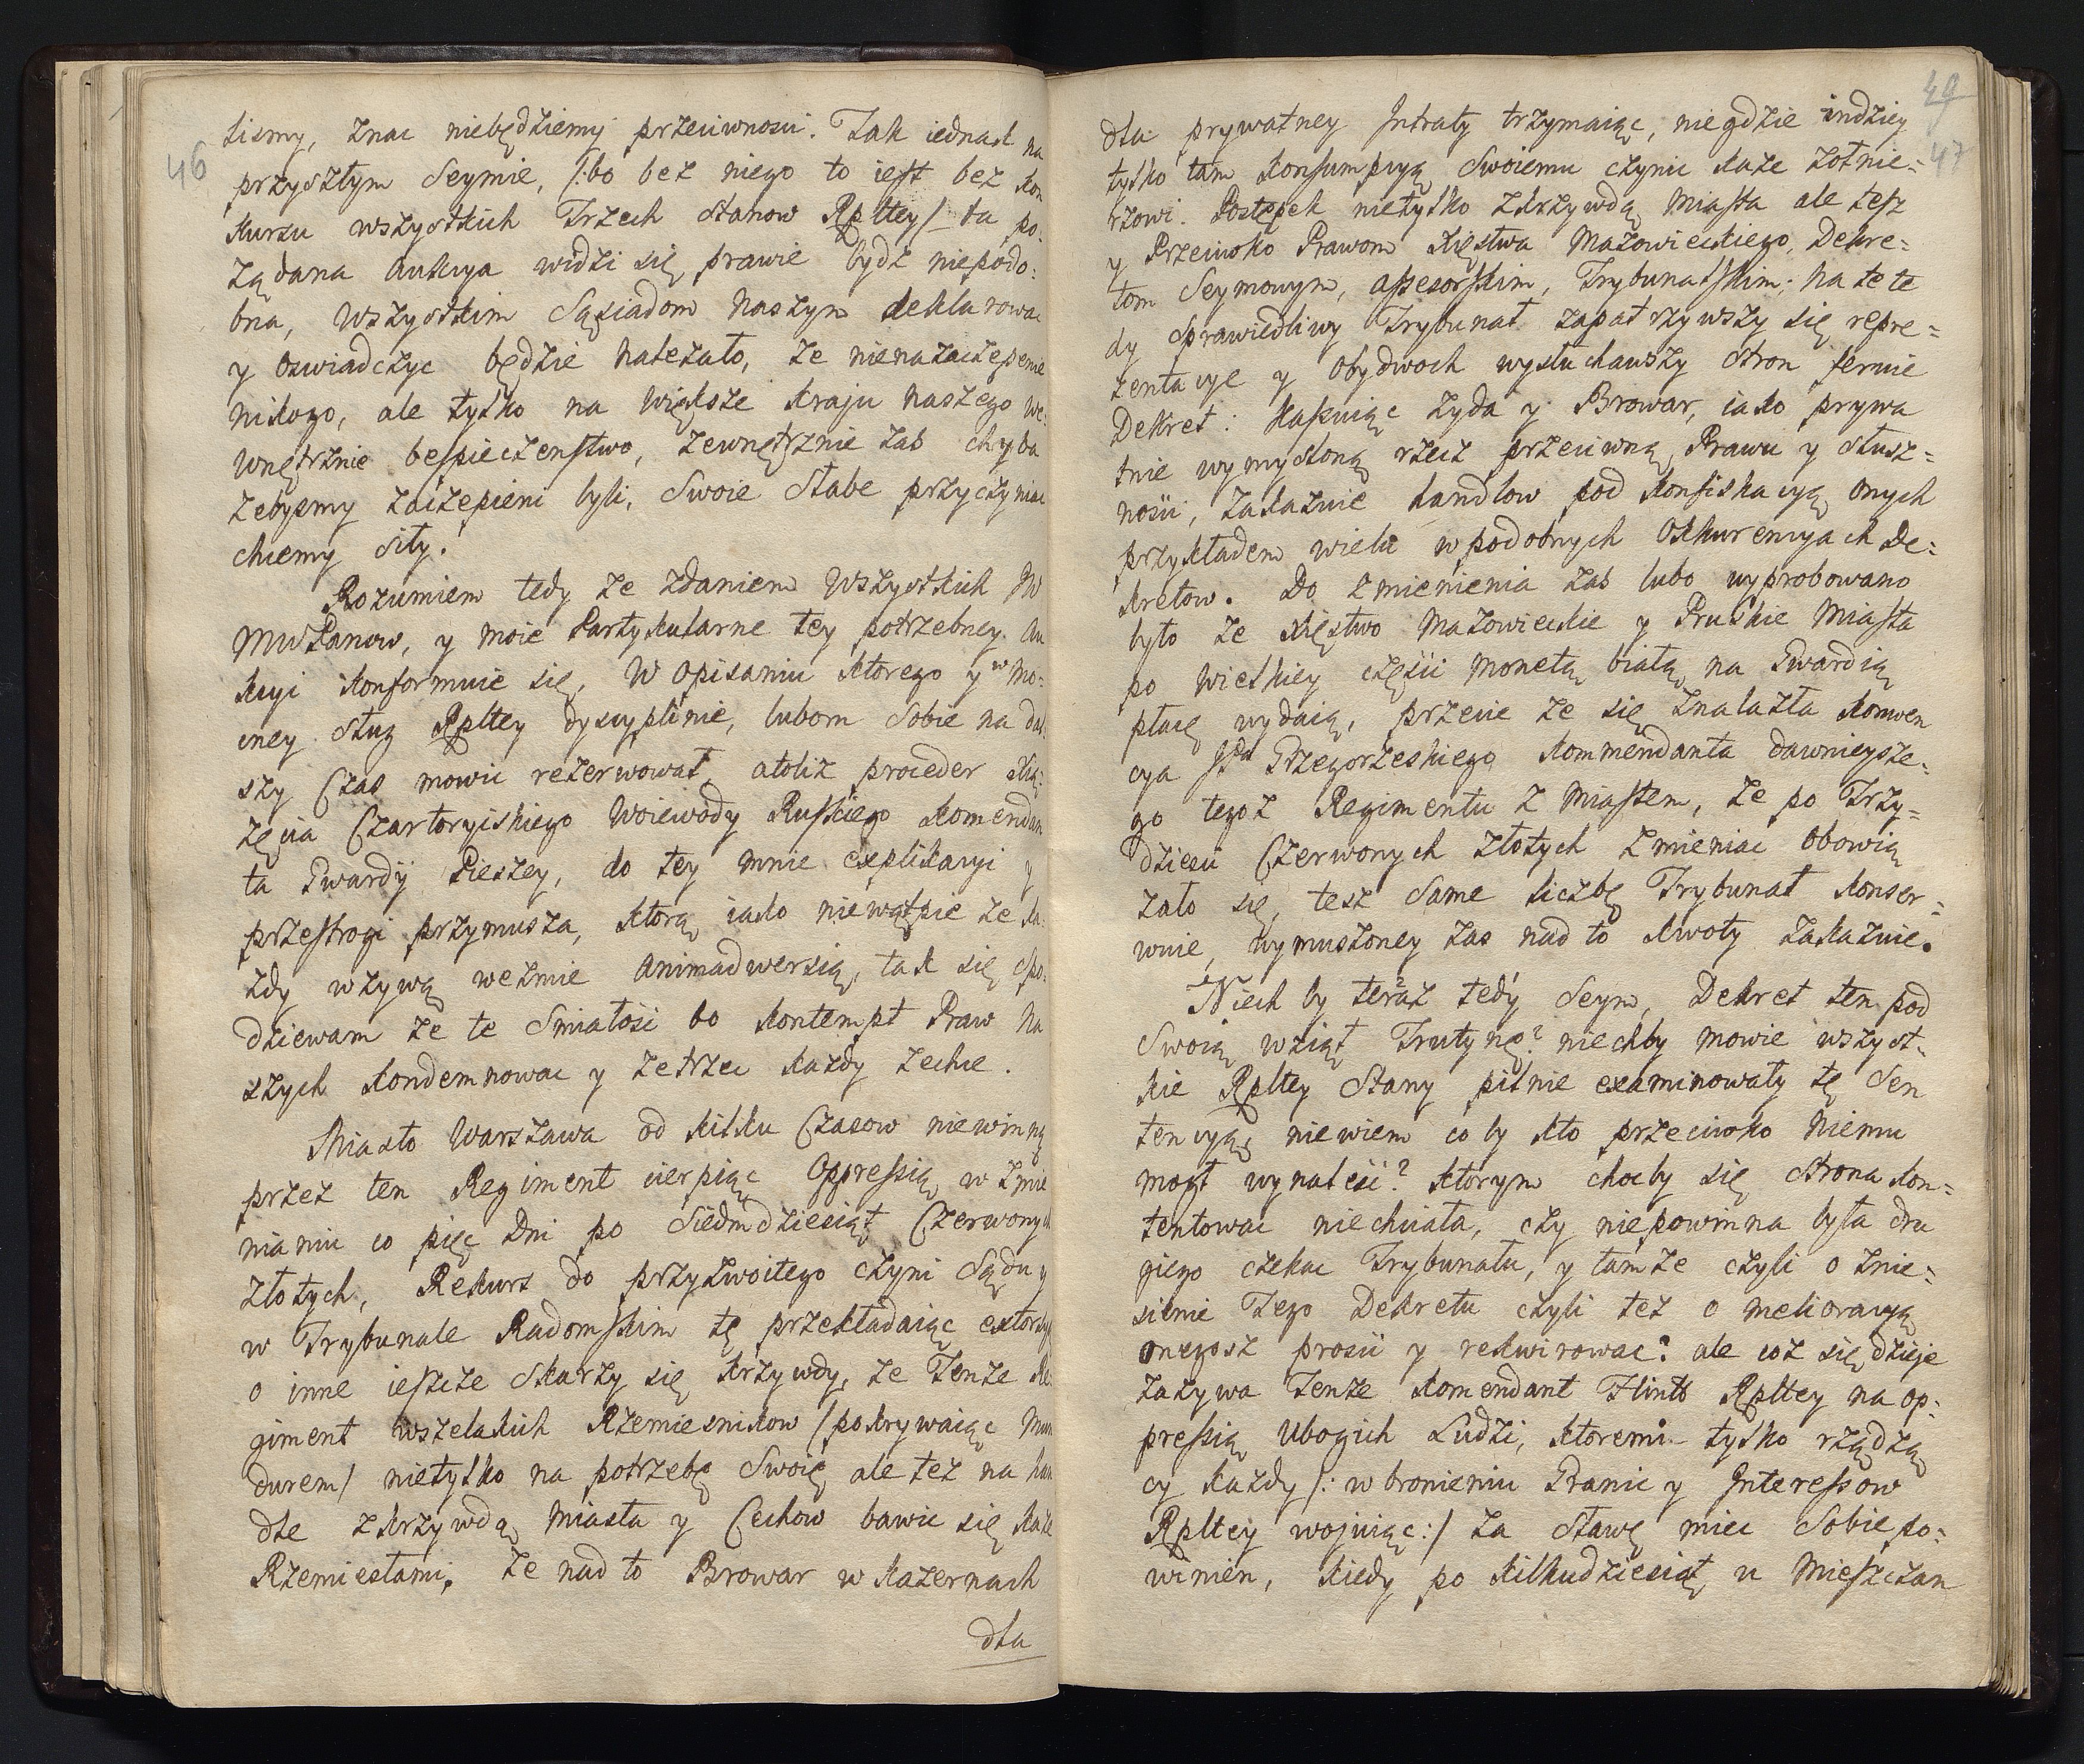 46
lismy, znac niebędziemy przeciwnosci. Jak iednak na
przyszłym Seymie, /:bo bez niego to iest bez kon
kursu wszystkich Trzech Stanow Rpltey/ ta po:
żądana Aukcya widzi się prawie bydz niepodo:
bna, Wszystkim Sąsiadom Naszym deklarowac
y Oswiadczyc będzie Nalezało, ze nienazaczepenie
nikogo, ale tylko na większe kraju Naszego we:
wnętrznie bespieczenstwo, zewnętrznie zas chyba
zebysmy zaczepieni byli, Swoie Słabe przyczyniac
chcemy siły.
Rozumiem tedy ze zdaniem Wszystkich JW
MWPanow, y moie Partykularne tey potrzebney Au
kcyi konformuie się, W Opisaniu ktorego y w mo:
cney Sług Rpltey dyscyplinie, lubom Sobie na dal
szy Czas mowic rezerwował, atoliz proceder Xią:
zęcia Czartoryiskiego Woiewody Ruskiego Komendan
ta Gwardÿ Pieszey, do tey mnie explikacyi y
przestrogi przymusza, ktorą iako niewątpie ze ka
zdy wzywą wezmie Animadwersią, tak się spo:
dziewam ze te Smiałosc bo kontempt Praw Na
szych kondemnowac y zetrzec kazdy zechce.
Miasto Warszawa od kilku Czasow niewinną
przez ten Regiment cierpiąc Oppressią w zmie
nianiu co pięc Dni po Siedmdziesiąt Czerwonych
złotych, Rekurs do przyzwoitego czyni Sądu y
w Trybunale Radomskim tę przekładaiąc extorsyą
o inne ieszcze Skarzy się krzywdy, ze Tenze Re
giment wszelakich Rzemiesnikow /pokrywaiąc Mun
durem/ nietylko na potrzebę Swoię ale tez na han
dle z krzywdą Miasta y Cechow bawic się kaze
Rzemiesłami, ze nad to Browar w kazernach
dla
49
47
dla prywatney Intraty trzymaiąc, niegdzie indziey
tylko tam konsumpcyą Swoiemu czynic kaze zołnie:
rzowi. Postępek nietylko z krzywdą Miasta ale tesz
y Przeciwko Prawom Xięstwa Mazowieckiego, Dekre:
tom Seymowym, assesorskim, Trybunalskim; Na te te
dy Sprawiedliwy Trybunał zapatrzywszy się repre:
zentacye y Obydwoch wysłuchawszy Stron feruie
Dekret: kassuiąc Zyda y Browar, iako prywa
tnie wymysloną rzecz przeciwną Prawu y słusz:
nosci, zakazuie handlow pod konfiskacyą Onych
przykładem wielu w podobnych Okkurencyach De:
kretow. Do zmienienia zas lubo wyprobowano
było ze Xięstwo Mazowieckie y Pruskie Miasta
po wielkiey częsci Monetą białą na Gwardią
płacę wydaią, przecie ze się znalazła konwen
cya JPa Grzegorzeskiego Kommendanta dawnieysze:
go tegoz Regimentu z Miastem, ze po Trzy:
dziesci Czerwonych złotych zmieniac Obowią
zało się, tesz Same liczbę Trybunał konser:
wuie, wymuszoney zas nad to kwoty zakazuie.
Niech by teraz tedy Seym, Dekret ten pod
Swoią wziął Trutynę? niechby mowie wszyst:
kie Rpltey Stany pilnie examinowały tę Sen
tencyą, niewiem coby kto przeciwko Niemu
mogł wynalesc? ktorym choćby się Strona kon:
tentowac niechciała, czy niepowinna była dru
giego czekac Trybunału, y tamze czyli o znie:
sienie Tego Dekretu czyli tez o melioracyą
onegosz prosic y rekwirowac? ale coz się dzieje
zazywa Tenze Komendant Flintt Rpltey na op:
pressią Ubogich Ludzi, ktoremi tylko rządzą
cy kazdy /: w bronieniu Granic y Interessow
Rpltey wojuiąc:/ za sławę miec Sobie po:
winien, kiedy po kilkudziesiąt u Mieszczan